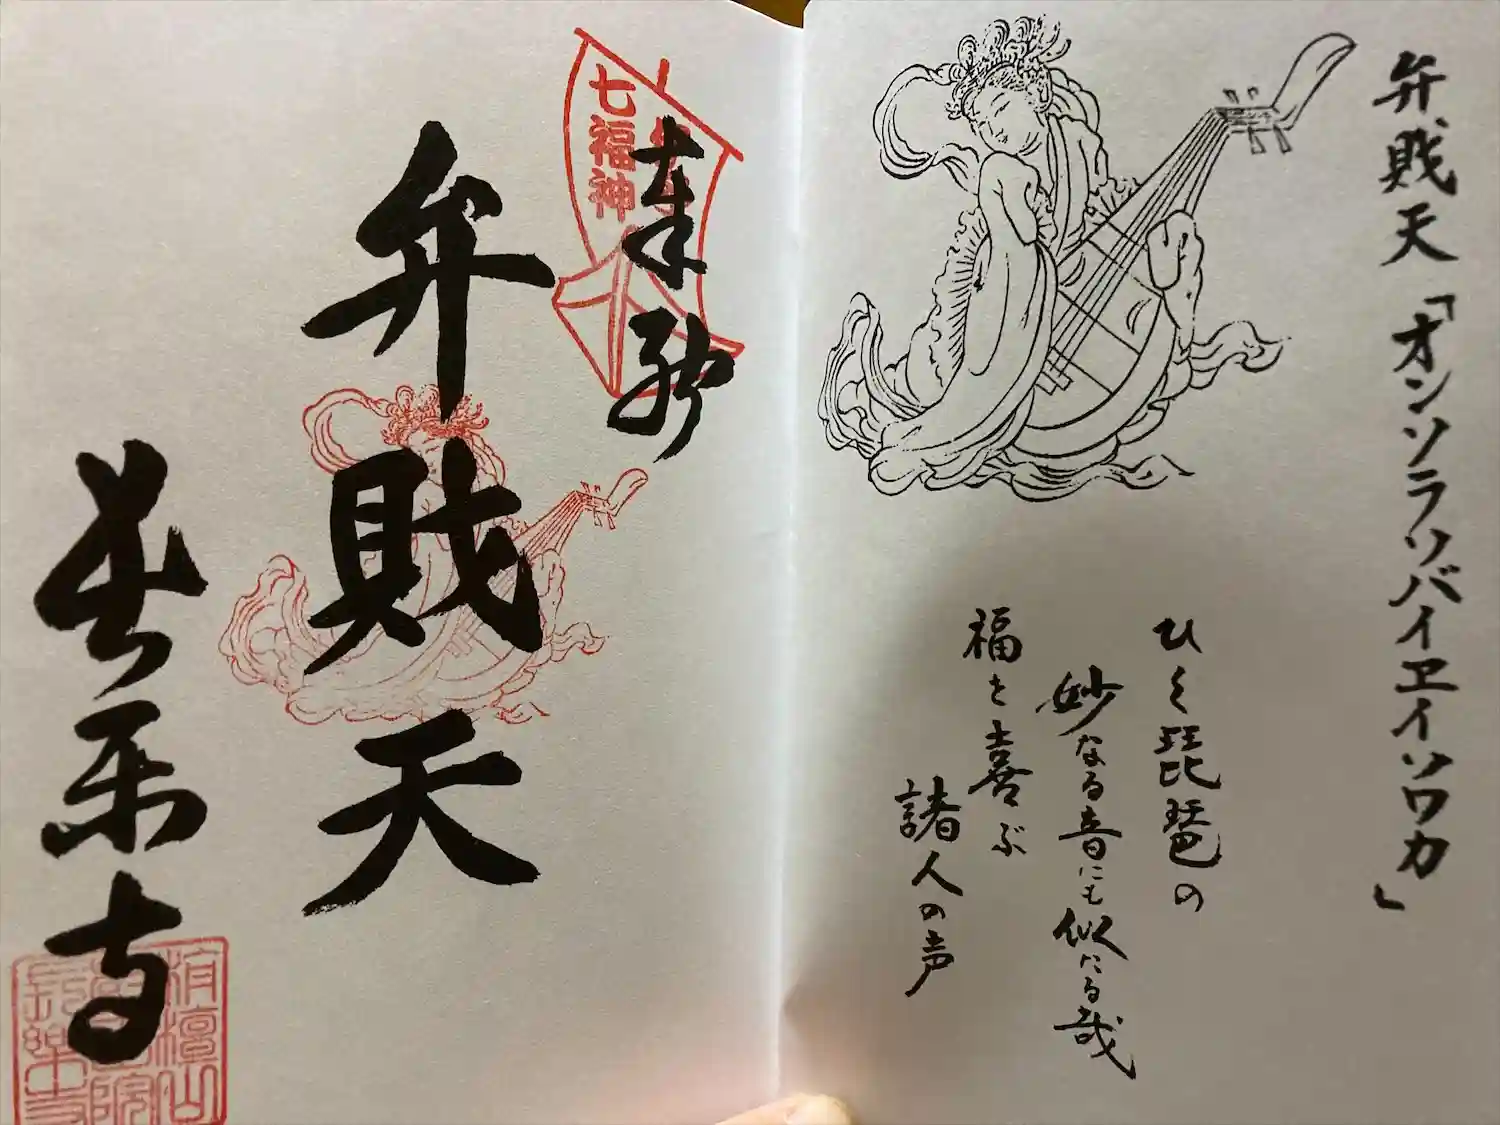 弁財天「オンソラソバイヱイソワカ」
ひく琵琶の
妙なる音にも似たる哉
福を喜ぶ
諸人の声
七福神
奉拝
弁財天
長楽寺